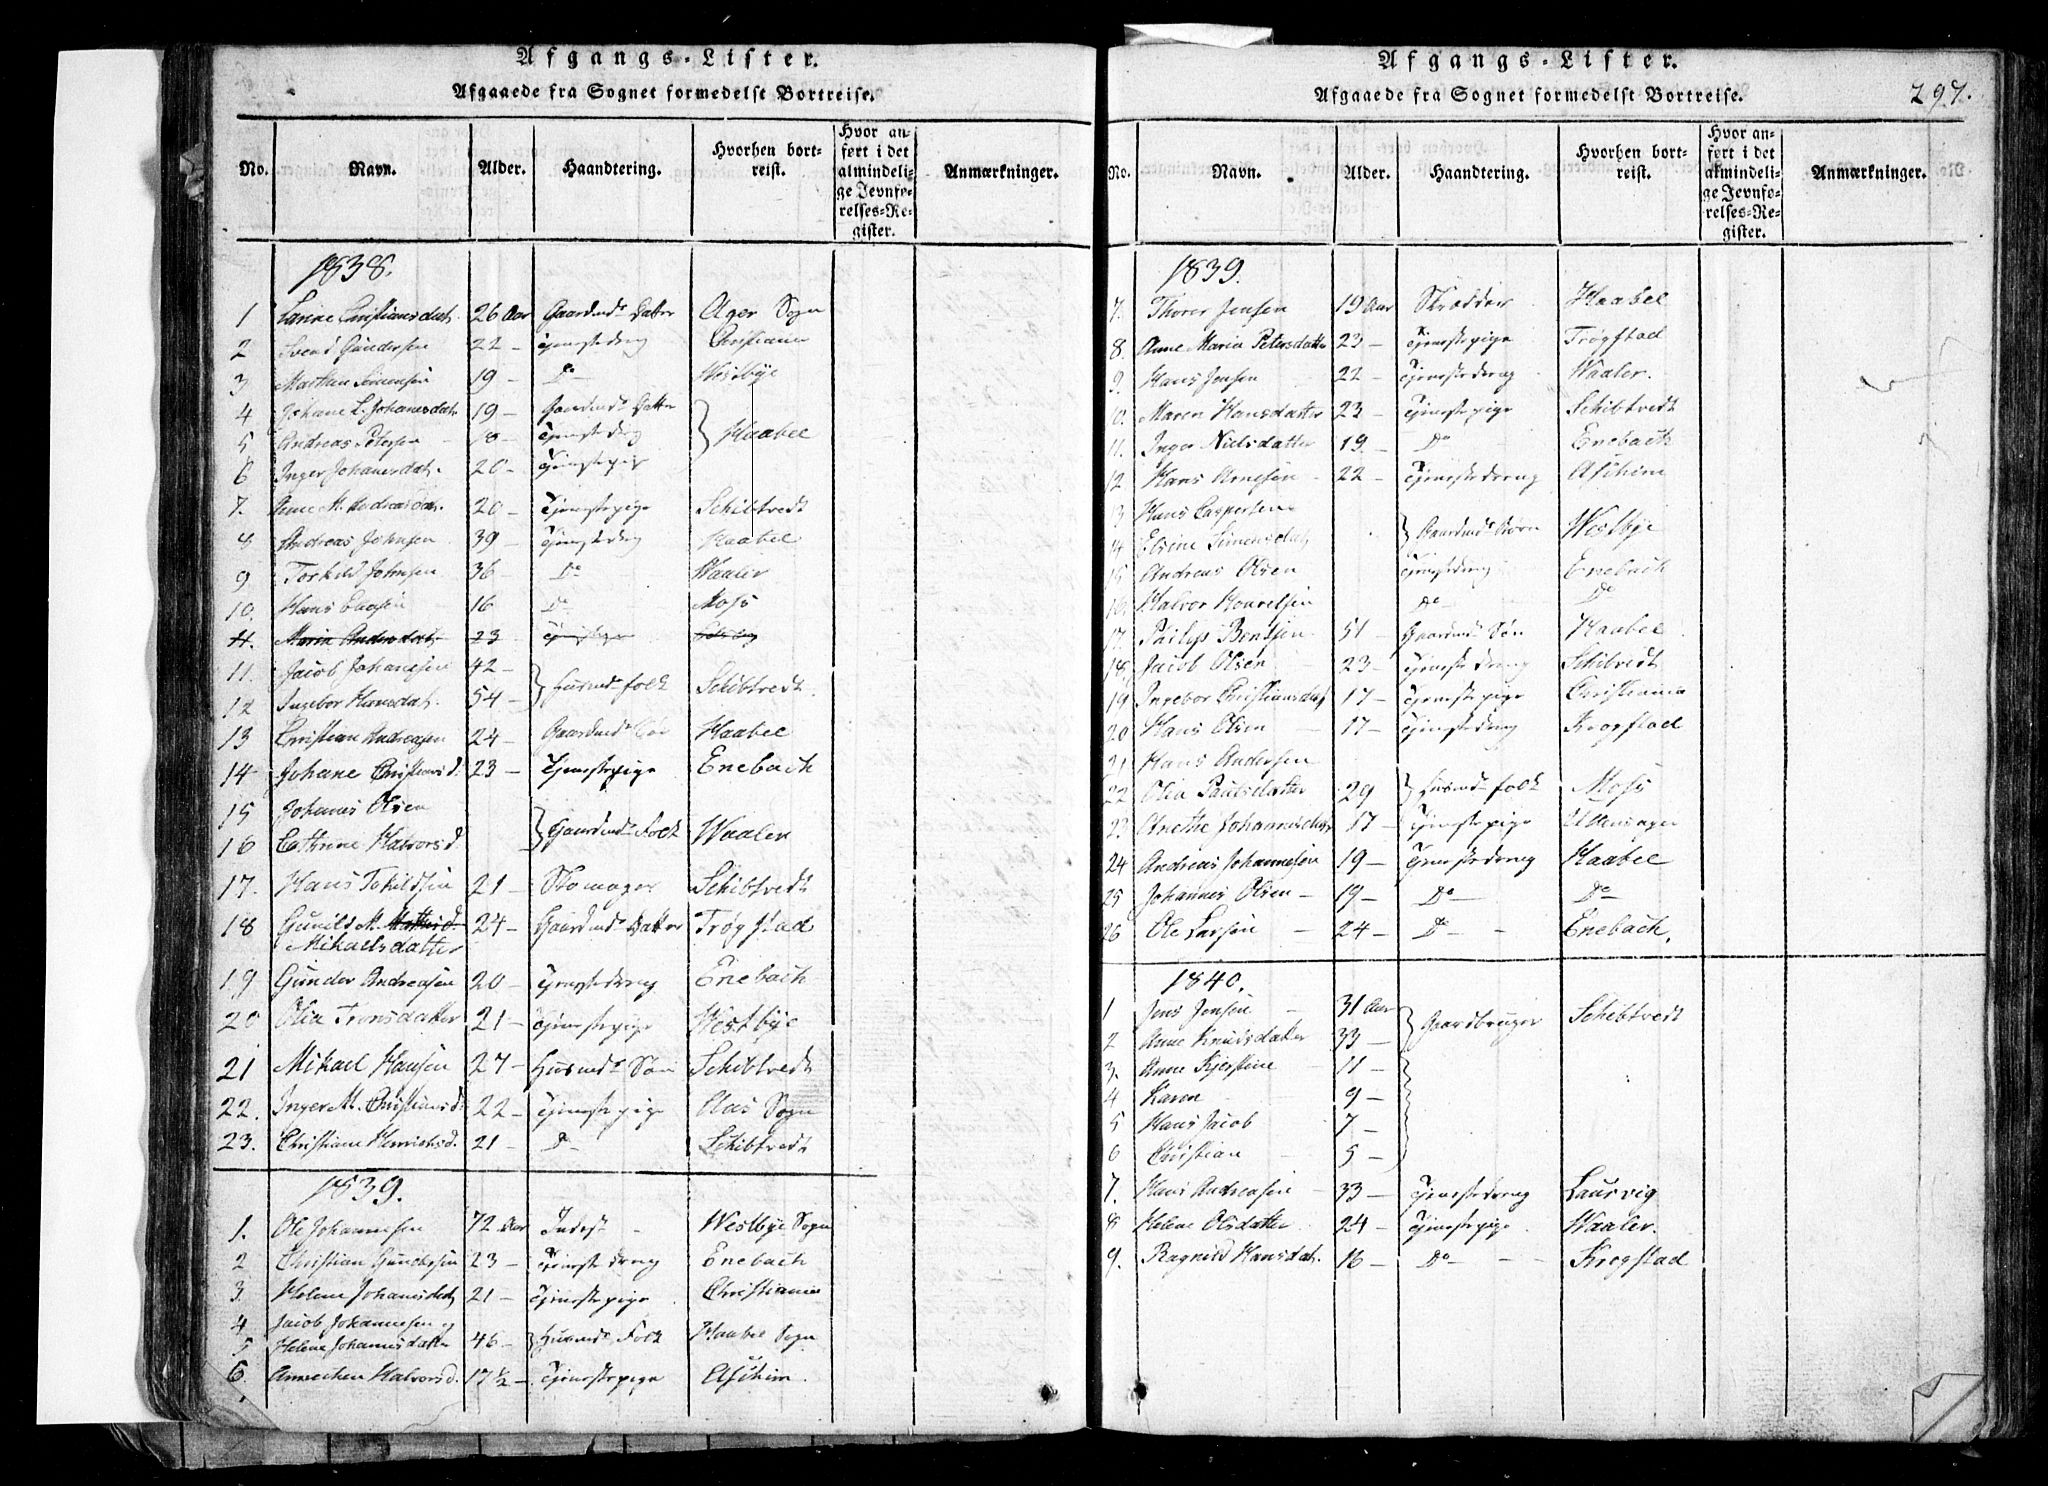 Afgangs-Lister.
Afgaaede fra Sognet formedelst Bortreise.
No. Navn. Alder. Haandtering. Hvorhen bortreist. Hvor anført i det almindelige Jevnførelses-Register. Anmærkninger.
1838.
1 Christiansdat. 26 Aar Gaardmds Datter Ager Sogn
2 Svend Gundersen 22 - Tjenestedreng Christiania
3 Mathias Simensen 19 - Do Westbye
4 Johane L. Johanesdat. 19 - Gaardmds Datter
5 Andreas Petersen 18 - Tjenestedreng Haabel
6 Inger Johanesdat. 20 - Tjenestepige
7. Anne M. Andreasdat. 20 - Tjenestepige Schibtvedt
8 Andreas Johnsen 39 - Tjenestedreng Haabel
9 Torkild Johnsen 36 - Do Waaler
10. Hans 16 Do Moss
11. Maria Andersdat. 23 Tjenestepige
11. Jacob Johanesen 42 -
12 Ingebor Hansdat. 54 - Husmds folk Schibtvedt.
13 Christian Andreasen 24 - Gaardmds Søn Haabel
14 Johane Christiansd. 23 - Tjenestepige Enebach
15 Johanes Olsen
16 Cathrine Halvorsd. Gaardmds Folk Waaler
17. Hans Tokildsen 21 - Skomager Schibtvedt
18 Gunild M. Mathisd. 24 - Gaardmds Datter Trøgstad
Mikaelsdatter
19 Gunder Andreasen 20 - Tjenestedreng Enebach
20 Olia Tronsdatter 21 - Tjenestepige Westbye
21 Mikael Hansen 27 - Husmds Søn Schibtvedt
22. Inger M. Christiansd. 22 - Tjenestepige Aas Sogn
23. Christiane Henrichsd. 21 - Do Schibtvedt
1839.
1. Ole Johannesen 72 Aar Inderst - Westbye Sogn
2 Christian Gundersen 23 - Tjenestedreng Enebach
3. Helene Johanisdat 21 - Tjenestepige Christiania
4 Jacob Johannesen og
5 Helene Johannisdatter 46 - Husmds Folk Haabel Sogn
6. Annechen Halvorsd. 17½ - Tjenestepige Aschim.
Afgangs-Lister.
Afgaaede fra Sognet formedelst Bortreise. 297.
No. Navn. Alder. Haandtering. Hvorhen bortreist. Hvor anført i det almindelige Jevnførelses-Register. Anmærkninger.
1839.
7. Thorer Jensen 19 Aar Skrædder Haabel
8. Anne Maria Petersdatter 23 - Tjenestepige Trøgstad
9. Hans Jensen 22 - Tjenestedreng Waaler.
10. Maren Hansdatter 23 - Tjenestepige Schibtvedt
11. Inger Nielsdatter 19 - Do Enebach
12 Hans Arnesen 22 - Tjenestedreng Aschim
13 Hans Caspersen
14 Elsine Simensdat, Gaardmds Westbye
15 Andreas Olsen Tjenestedreng Enebach
16. Halvor Do Do
17. Philip Bentsen 51 - Gaardmds Søn Haabel
18. Jacob Olsen 23 - Tjenestedreng Schibtvedt
19 Ingebor Christiansdat 17 - Tjenestepige Christiania
20 Hans Olsen - 17 - Tjenestedreng Krogstad
21 Hans Andersen
22 Olia Paulsdatter 29 Husmds folk Moss
23. Anethe Johannisdat 17 - Tjenestepige Ullensager
24 Andreas Johannesen 19 - Tjenestedreng Haabel
25 Johannes Olsen - 19 - Do Do
26 Ole Larsen - 24 - Do - Enebach.
1840.
1 Jens Jensen - 31 Aar Gaardbruger Schibtvedt
2 Anne Knudsdatter 33 -
3. Anne Kjerstine 11 -
4 Karen 9 -
5 Hans Jacob 7 -
6 Christian 5 -
7. Hans Andreasen 33 - Tjenestedreng Laurvig
8 Helene Olsdatter 24 - Tjenestepige Waaler.
9. Ragnild Hansdat. 16 - Do - - Krogstad